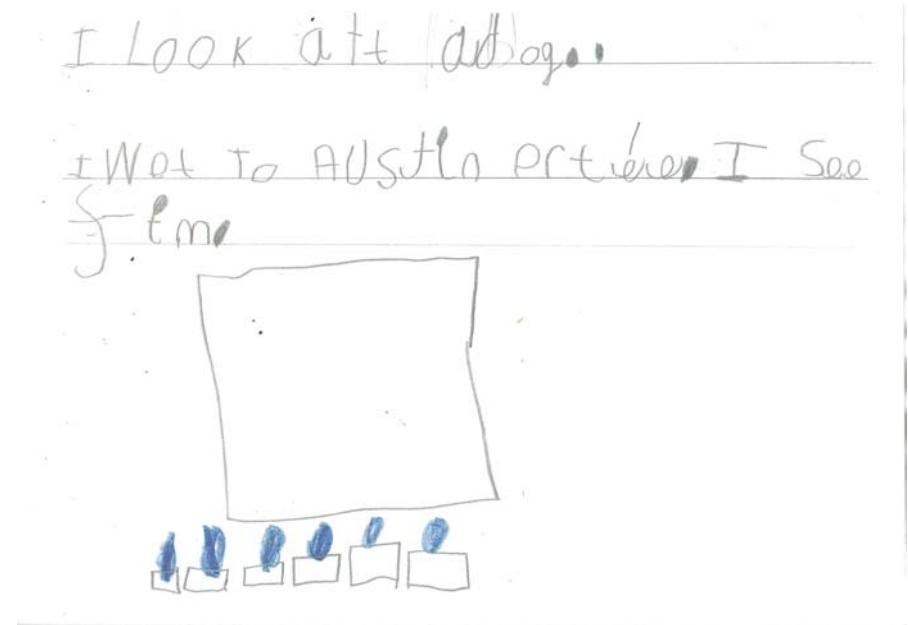 I LOOK att adog..
I Wet To AUstln ertiere. I See
f-tm.